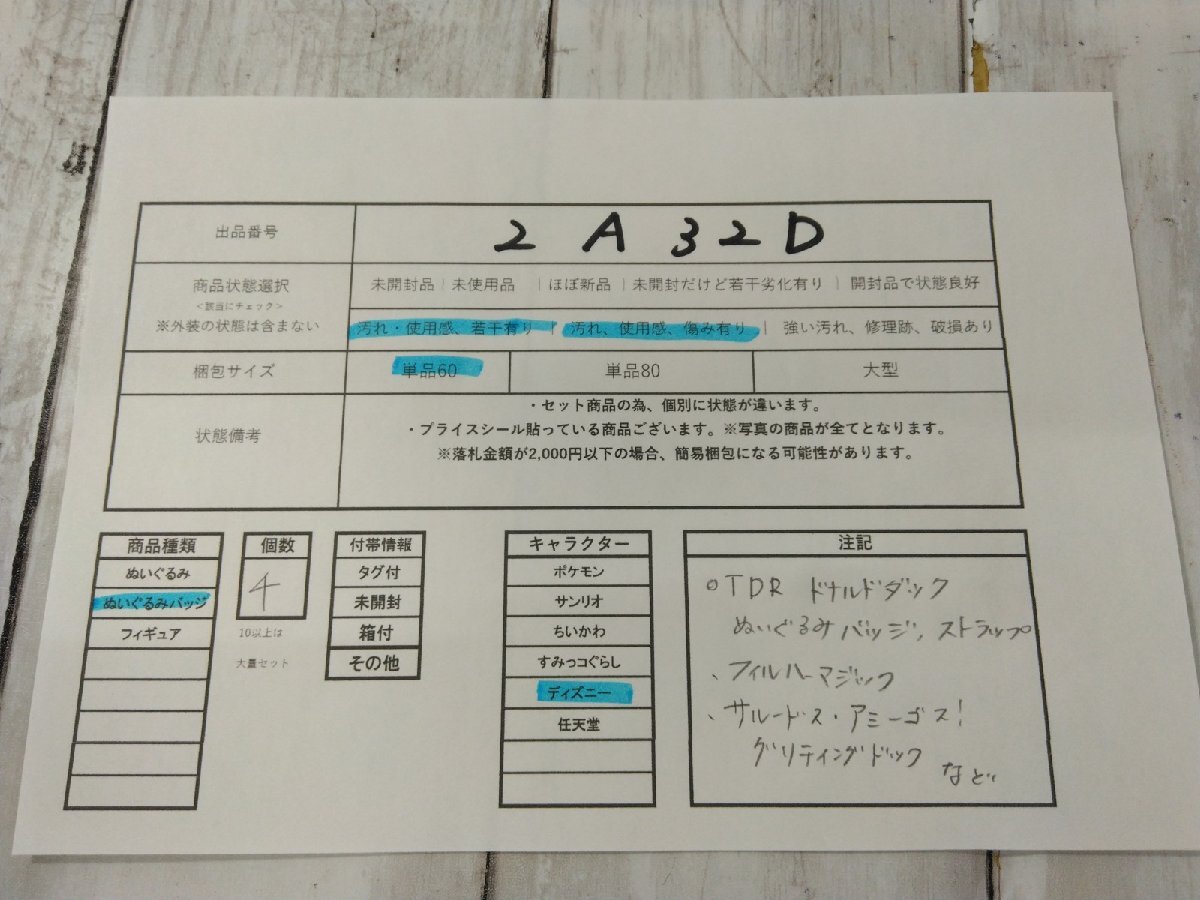 出品番号 2A32D
商品状態選択 未開封品 | 未使用品 | ほぼ新品 | 未開封だけど若干劣化有り | 開封品で状態良好
<該当にチェック>
※外装の状態は含まない 汚れ・使用感、若干有り | 汚れ、使用感、傷み有り | 強い汚れ、修理跡、破損あり
梱包サイズ 単品60 単品80 大型
状態備考
・セット商品の為、個別に状態が違います。
・プライスシール貼っている商品ございます。※写真の商品が全てとなります。
※落札金額が2,000円以下の場合、簡易梱包になる可能性があります。
商品種類
ぬいぐるみ
ぬいぐるみバッジ
フィギュア
個数
4
10以上は
大量セット
付帯情報
タグ付
未開封
箱付
その他
キャラクター
ポケモン
サンリオ
ちいかわ
すみっコぐらし
ディズニー
任天堂
注記
○TDR ドナルドダック
ぬいぐるみバッジ, ストラップ
、フィルハーマジック
、サルードス・アミーゴス!
グリティングドック
など